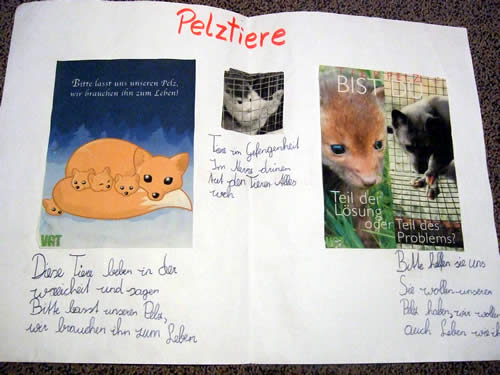 Pelztiere
Bitte lasst uns unseren Pelz,
wir brauchen ihn zum Leben!
VGT
Tiere in Gefengenheit
Im Nerze drinen
Auf den Tieren Alles
weh
PELZ
BIST
Teil der
Lösung
oder
Teil des
Problems?
VGT
Diese Tiere leben in der
und sagen
Bitte lasst unseren Pelz,
wir brauchen ihn zum Leben
Bitte helfen sie uns
Sie wollen unseren
Pelz haben, wir wollen
auch Leben wie ih